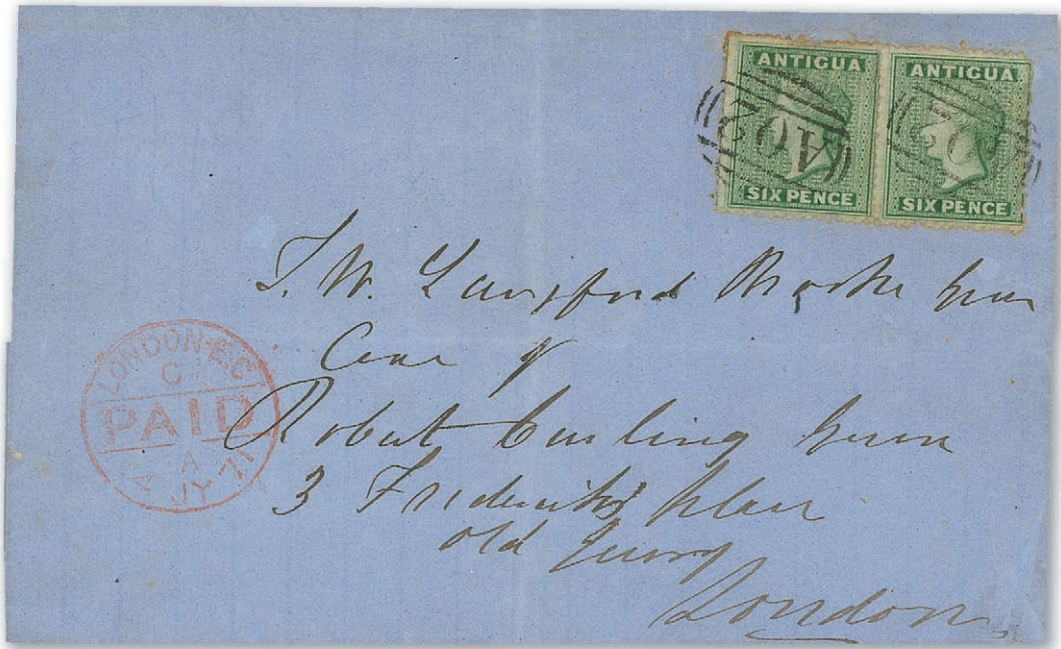 ANTIGUA
SIX PENCE
A02
ANTIGUA
SIX PENCE
02
T. W. Langford Brooke Esqre
Care of
Robert Curling Esqre
3 Frederick's Place
Old Jewry
London
LONDON-E.C
C
PAID
A
JY 71